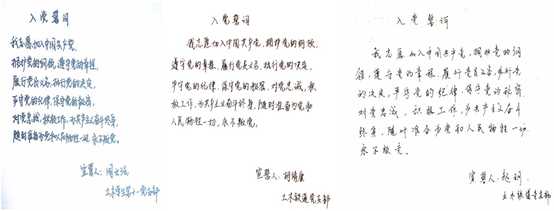 入党誓词
我志愿加入中国共产党,
拥护党的纲领,遵守党的章程,
履行党员义务,执行党的决定,
严守党的纪律,保守党的秘密,
对党忠诚,积极工作,为共产主义奋斗终身,
随时准备为党和人民牺牲一切,永不叛党。
宣誓人:周
土木学生第十一党支部
入党誓词
我志愿加入中国共产党,拥护党的纲领,
遵守党的章程,履行党员义务,执行党的决定,
严守党的纪律,保守党的秘密,对党忠诚,积
极工作,为共产主义奋斗终身,随时准备为党和
人民牺牲一切,永不叛党。
宣誓人:胡
土木 党支部
入党誓词
我志愿加入中国共产党,拥护党的纲
领,遵守党的章程,履行党员义务,执行党
的决定,严守党的纪律,保守党的秘密
对党忠诚,积极工作,为共产主义奋斗
终身,随时准备为党和人民牺牲一切
永不叛党。
宣誓人:赵
土木 党支部